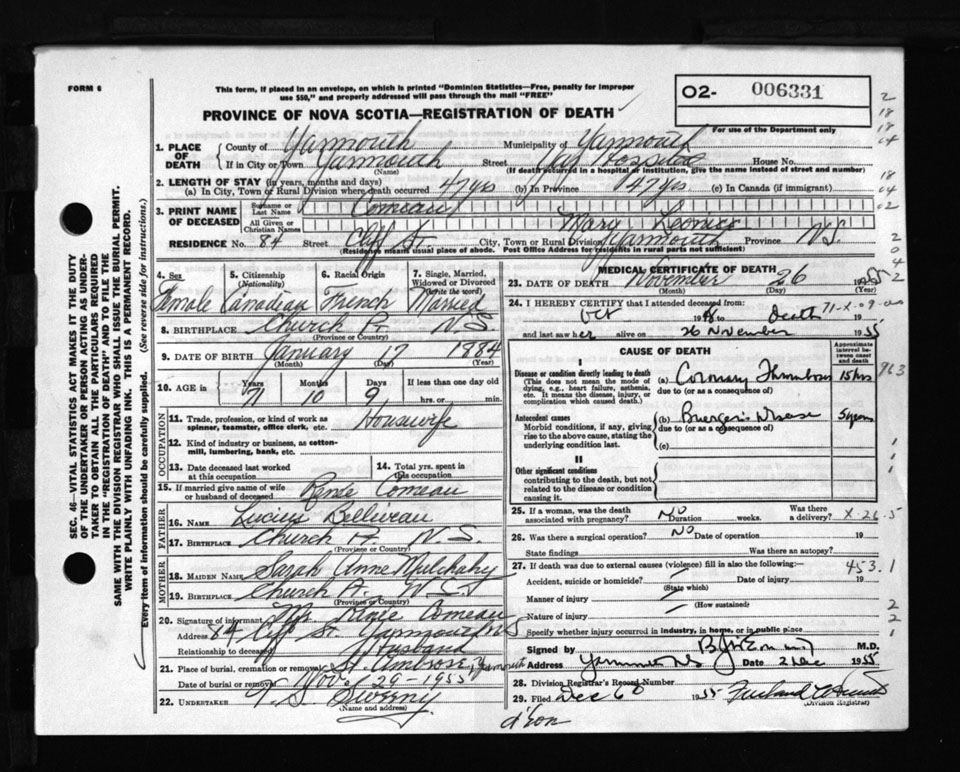 FORM 6
This form, if placed in an envelope, on which is printed "Dominion Statistics—Free, penalty for improper
use $50," and properly addressed will pass through the mail "FREE"
O2- 006331
PROVINCE OF NOVA SCOTIA—REGISTRATION OF DEATH
For use of the Department only
1. PLACE OF DEATH County of Yarmouth Municipality of Yarmouth
If in City or Town Yarmouth (Name) Street Yar Hospital House No.
(If death occurred in a hospital or institution, give the name instead of street and number)
2. LENGTH OF STAY (in years, months and days)
(a) In City, Town or Rural Division where death occurred 47 yrs (b) In Province 47 yrs. (c) In Canada (if immigrant)
3. PRINT NAME OF DECEASED Surname or Last Name Comeau
All Given or Christian Names Mary
RESIDENCE No. 84 Street Cliff St. City, Town or Rural Division Yarmouth Province N.S.
(Residence means usual place of abode. Post Office Address for residents in rural parts not sufficient)
4. Sex Female
5. Citizenship (Nationality) Canadian
6. Racial Origin French
7. Single, Married, Widowed or Divorced (Write the word) Married
8. BIRTHPLACE Church Pt. N.S.
(Province or Country)
9. DATE OF BIRTH January 17 1884
(Month) (Day) (Year)
10. AGE in Years 71 Months 10 Days 9 If less than one day old hrs. or min.
OCCUPATION
11. Trade, profession, or kind of work as spinner, teamster, office clerk, etc. Housewife
12. Kind of industry or business, as cotton-mill, lumbering, bank, etc.
13. Date deceased last worked at this occupation
14. Total yrs. spent in this occupation
15. If married give name of wife or husband of deceased Renée Comeau
FATHER
16. NAME Lucius Belliveau
17. BIRTHPLACE Church Pt. N.S.
(Province or Country)
MOTHER
18. MAIDEN NAME Sarah Anne Mulchahy
19. BIRTHPLACE Church Pt. N.S.
(Province or Country)
20. Signature of informant Mr. Comeau
Address 84 Cliff St. Yarmouth NS
Relationship to deceased Husband
21. Place of burial, cremation or removal St. Ambrose, Yarmouth
Date of burial or removal Nov. 29 - 1955
22. UNDERTAKER Sweeny
(Name and address)
MEDICAL CERTIFICATE OF DEATH
23. DATE OF DEATH November 26 1955
(Month) (Day)
24. I HEREBY CERTIFY that I attended deceased from:
Oct 19 to Death 19
and last saw her alive on 26 November 1955
I CAUSE OF DEATH
Approximate interval between onset and death
Disease or condition directly leading to death
(This does not mean the mode of dying, e.g., heart failure, asthenia, etc. It means the disease, injury, or complication which caused death.)
(a) Coronary Thrombosis 15 hrs
due to (or as a consequence of)
Antecedent causes
Morbid conditions, if any, giving rise to the above cause, stating the underlying condition last.
(b) Buerger's Disease 5 years
due to (or as a consequence of)
(c)
II
Other significant conditions
contributing to the death, but not related to the disease or condition causing it.
25. If a woman, was the death associated with pregnancy? No Duration weeks. Was there a delivery?
26. Was there a surgical operation? No Date of operation 19
State findings Was there an autopsy?
27. If death was due to external causes (violence) fill in also the following:—
453.1
Accident, suicide or homicide? (State which) Date of injury 19
Manner of injury (How sustained)
Nature of injury
Specify whether injury occurred in industry, in home, or in public place
Signed by M.D.
Address Yarmouth NS Date 2 Dec 1955
28. Division Registrar's Record Number
29. Filed Dec 6 1955
(Division Registrar)
SEC. 46—VITAL STATISTICS ACT MAKES IT THE DUTY
OF THE UNDERTAKER OR PERSON ACTING AS UNDERTAKER
TO OBTAIN ALL THE PARTICULARS REQUIRED
IN THE "REGISTRATION OF DEATH" AND TO FILE THE
SAME WITH THE DIVISION REGISTRAR WHO SHALL ISSUE THE BURIAL PERMIT.
WRITE PLAINLY WITH UNFADING INK. THIS IS A PERMANENT RECORD.
Every item of information should be carefully supplied. (See reverse side for instructions.)